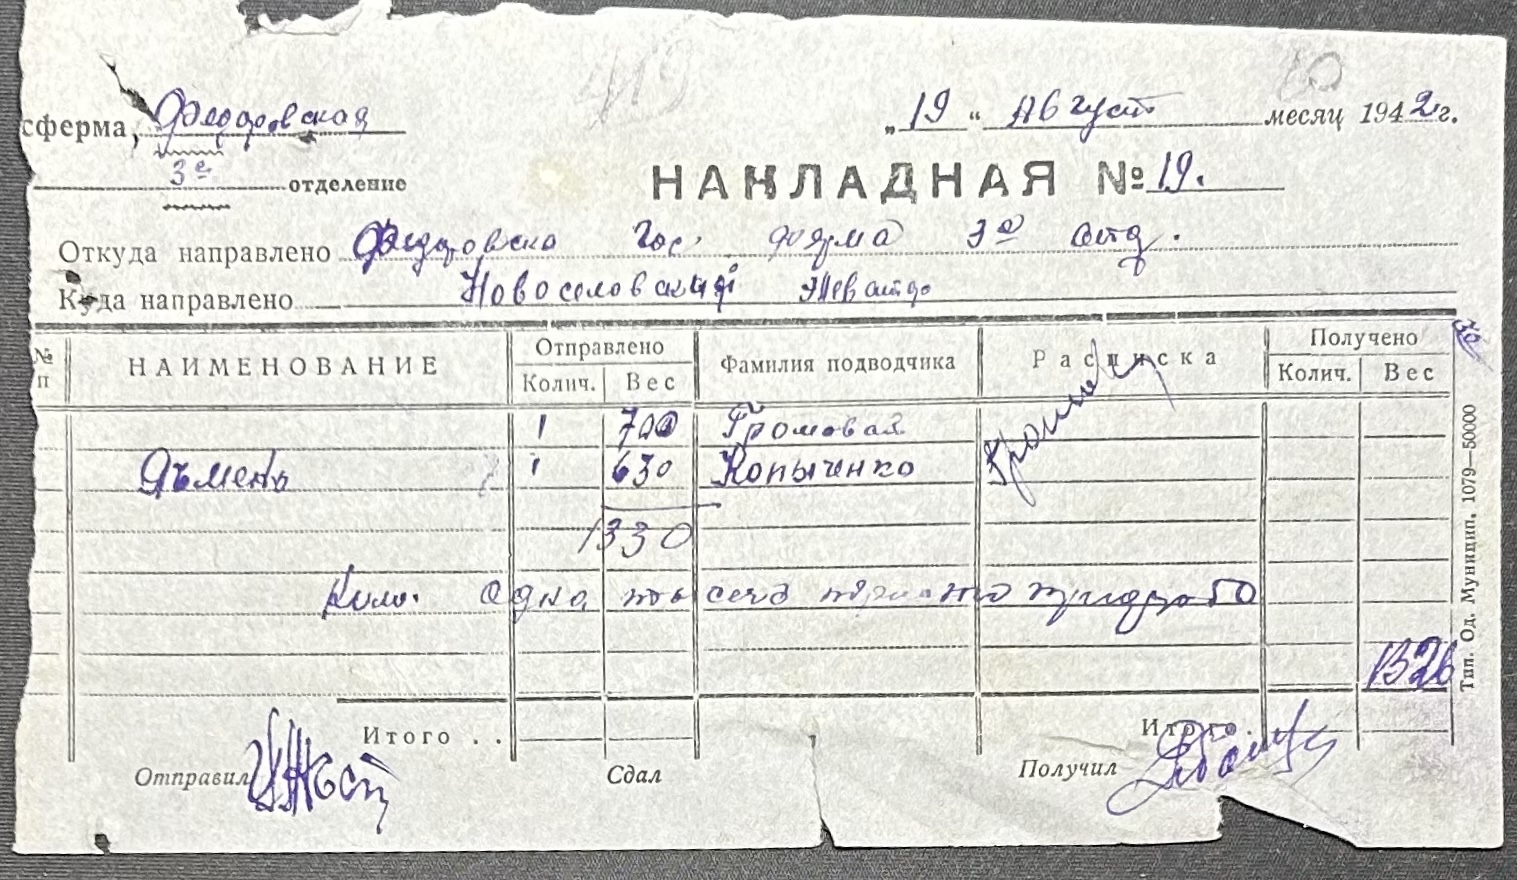 419 80
сферма, Федоровская „19“ Август месяц 1942 г.
3е отделение
НАКЛАДНАЯ № 19.
Откуда направлено Федоровска Гос. ферма 3е отд.
Куда направлено Новоселовский
№ п НАИМЕНОВАНИЕ Отправлено Колич. Вес Фамилия подводчика Расписка Получено Колич. Вес
1 700 Громовая
Ячмень 1 630 Копыченко
1330
Кило. Одна тысеча триста тридцать
1326
Итого . . Итого .
Отправил Сдал Получил
Тип. Од. Муницип. 1079—50000